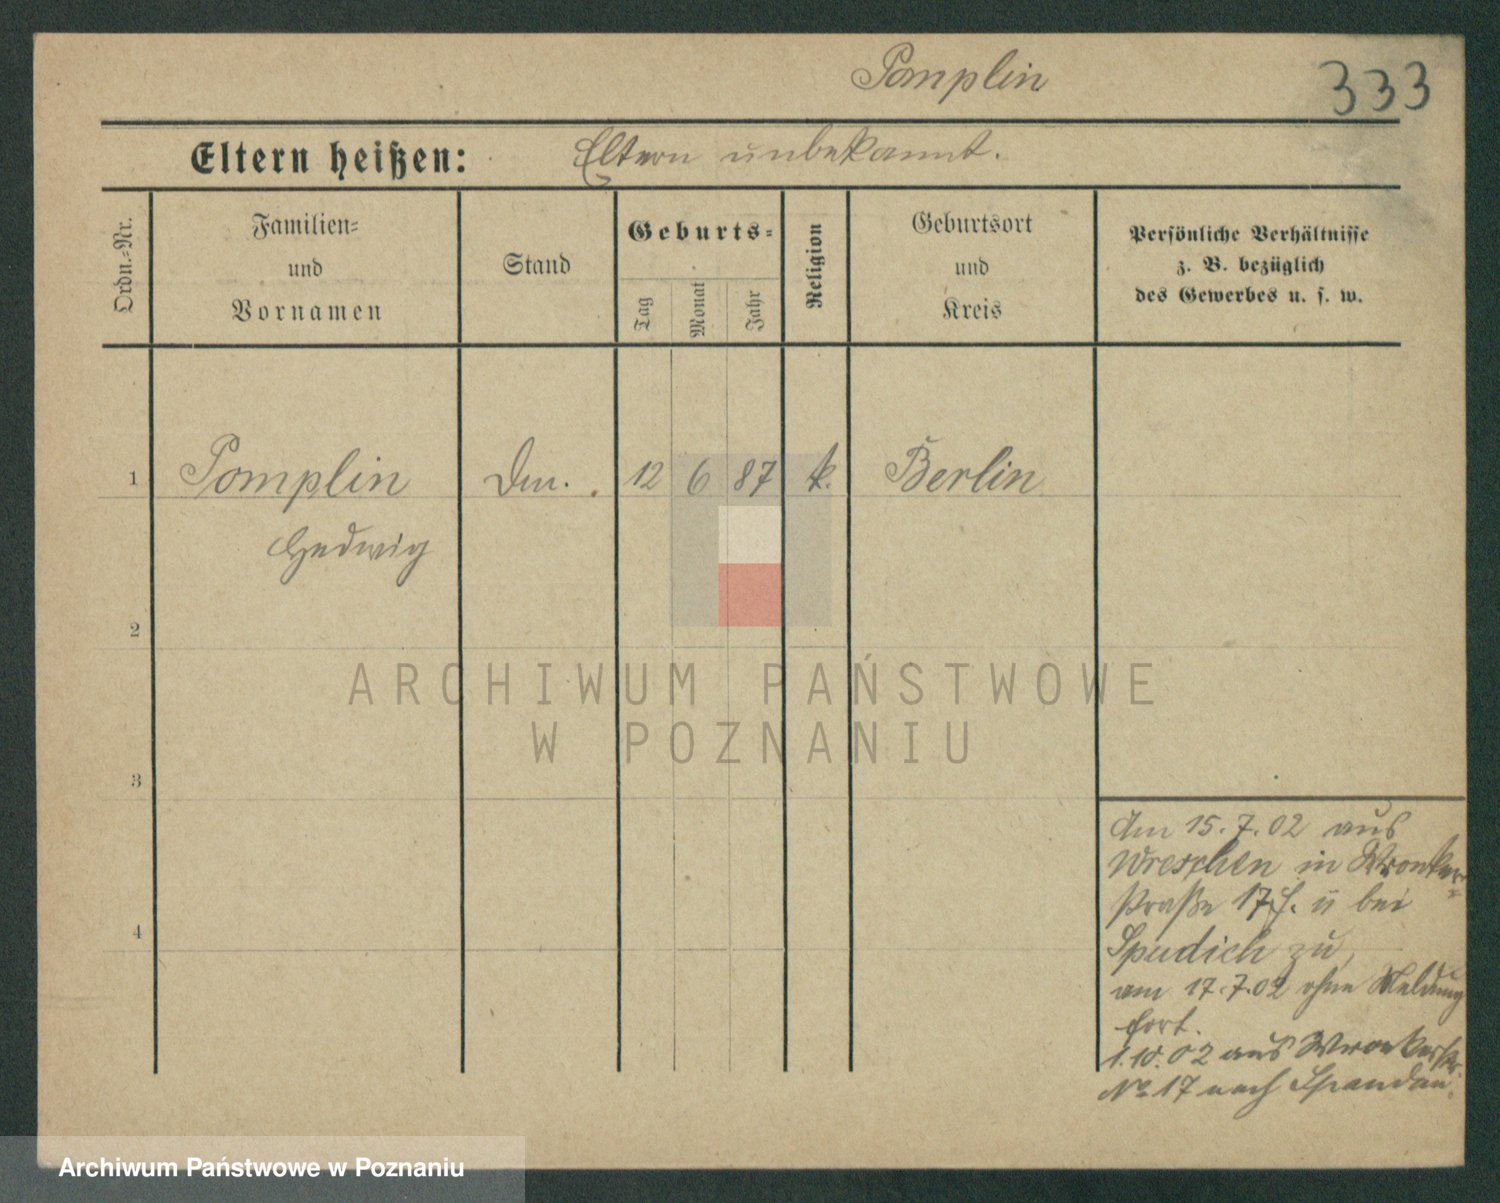 Pomplin
333
Eltern heißen: Eltern unbekannt.
Ordn.-Nr.
Familien-
und
Vornamen
Stand
Geburts-
Tag
Monat
Jahr
Religion
Geburtsort
und
Kreis
Persönliche Verhältnisse
z. B. bezüglich
des Gewerbes u. s. w.
1 Pomplin 12 6 87 k. Berlin
Hedwig
2
3
4
Am 15.7.02 aus
Wreschen in Wronker-
straße 17 b. bei
Spudich zu,
am 17.7.02 ohne Meldung
fort.
1.10.02 aus Wronkerstr.
No 17 nach Spandau.
ARCHIWUM PAŃSTWOWE
W POZNANIU
Archiwum Państwowe w Poznaniu